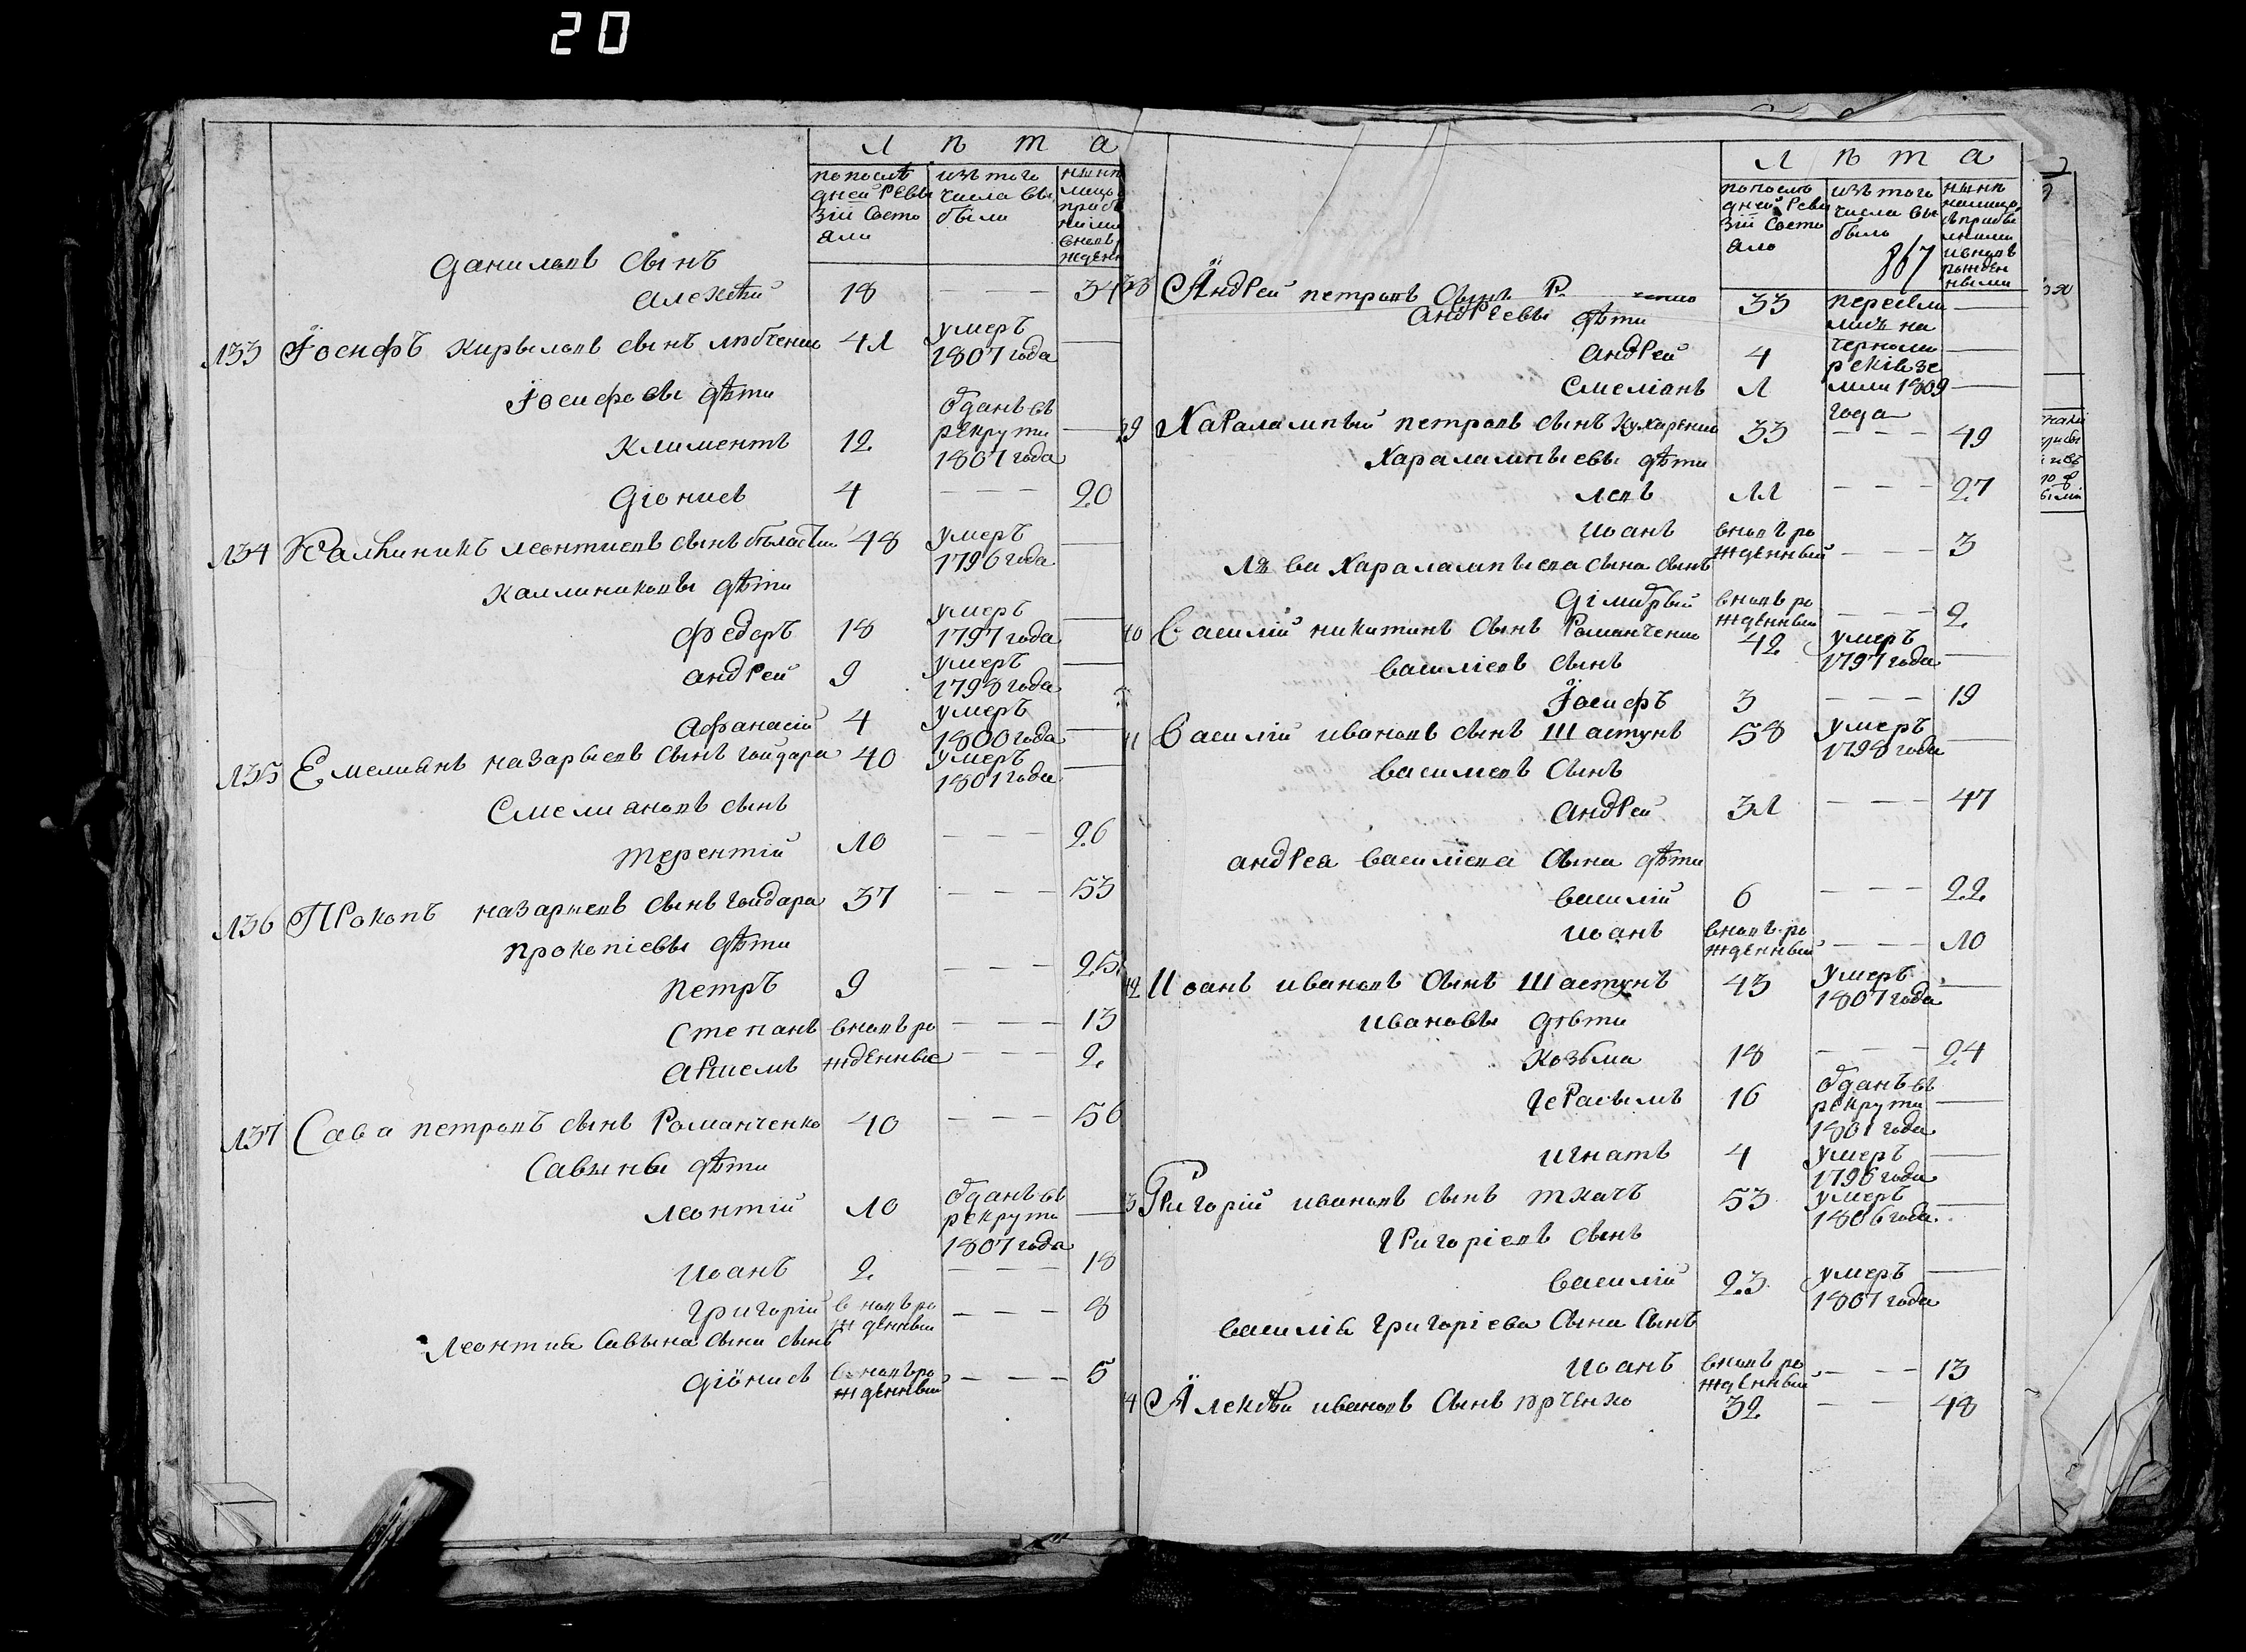 20
Л ѣ т а
по послѣ
дней Реви
зіи Состо
яли
изъ того
числа вы
были
Даниловъ Сынъ
Алексѣй 18 — — — 34
133 Іосифъ Кирыловъ сынъ Любченко 41 умеръ
1807 года —
Іосифовы дѣти
Климентъ 12 Отданъ въ
рекруты
1807 года —
Діонисъ 4 — — — 20
134 Калиникъ Леонтиевъ сынъ 48 умеръ
1796 года —
Каллиниковы дѣти
Федоръ 18 умеръ
1797 года —
Андрей 9 умеръ
1798 года —
Афанасій 4 умеръ
1800 года —
135 Емелиянъ Назарыевъ Сынъ Гойдара 40 умеръ
1801 года —
Емелияновъ сынъ
Терентій 10 — — — 26
136 Прокопъ Назарыевъ Сынъ Гойдара 37 — — — 53
Прокопіевы дѣти
Петръ 9 — — — 25
Степанъ вновь ро — — — 13
Артемъ жденные — — — 2
137 Сава Петровъ сынъ Романченко 40 — — — 56
Савыны дѣти
Леонтій 10 Отданъ въ
рекруты
1807 года —
Иоанъ 2 — — — 18
Григорій вновь ро
жденный — — — 8
Леонтия Савына сына сынъ
Діонисъ вновь ро
жденный — — — 5
Л ѣ т а
по послѣ
дней Реви
зіи Состо
яло
изъ того
числа вы
было
867
нынѣ
налицо
съ прибы
лыми
и вновь
рожден
ными
Андрей Петровъ Сынъ 33 пересели
лись на
Черномо
рскія зе
мли 1809
года —
Андреевы дѣти
Андрей 4 —
Емеліянъ 1 —
39 Харалампый Петровъ сынъ Кухаренко 33 — — — 49
Харалампыевы дѣти
Левъ 11 — — — 27
Иоанъ вновь ро
жденный — — — 3
Льва Харалампыева сына сынъ
Дімитрый вновь ро
жденный — — — 2
40 Василій Никитинъ Сынъ Романченко 42 умеръ
1797 года —
Василіевъ сынъ
Іосифъ 3 — — — 19
41 Василій Ивановъ сынъ Шастунъ 58 умеръ
1798 года —
Василиевъ Сынъ
Андрей 31 — — — 47
Андрея Василіева Сына дѣти
Василій 6 — — — 22
Иоанъ вновь ро
жденный — — — 10
42 Иоанъ Ивановъ Сынъ Шастунъ 43 умеръ
1807 года —
Ивановы дѣти
Козьма 18 — — — 24
Герасымъ 16 Отданъ въ
рекруты
1801 года —
Игнатъ 4 умеръ
1796 года —
3 Григорій Ивановъ сынъ Ткачъ 53 умеръ
1806 года —
Григоріевъ сынъ
Василій 23 умеръ
1807 года —
Василія Григоріева Сына Сынъ
Иоанъ вновь ро
жденный — — — 13
4 Алексѣй Ивановъ Сынъ Юрченко 32 — — 48